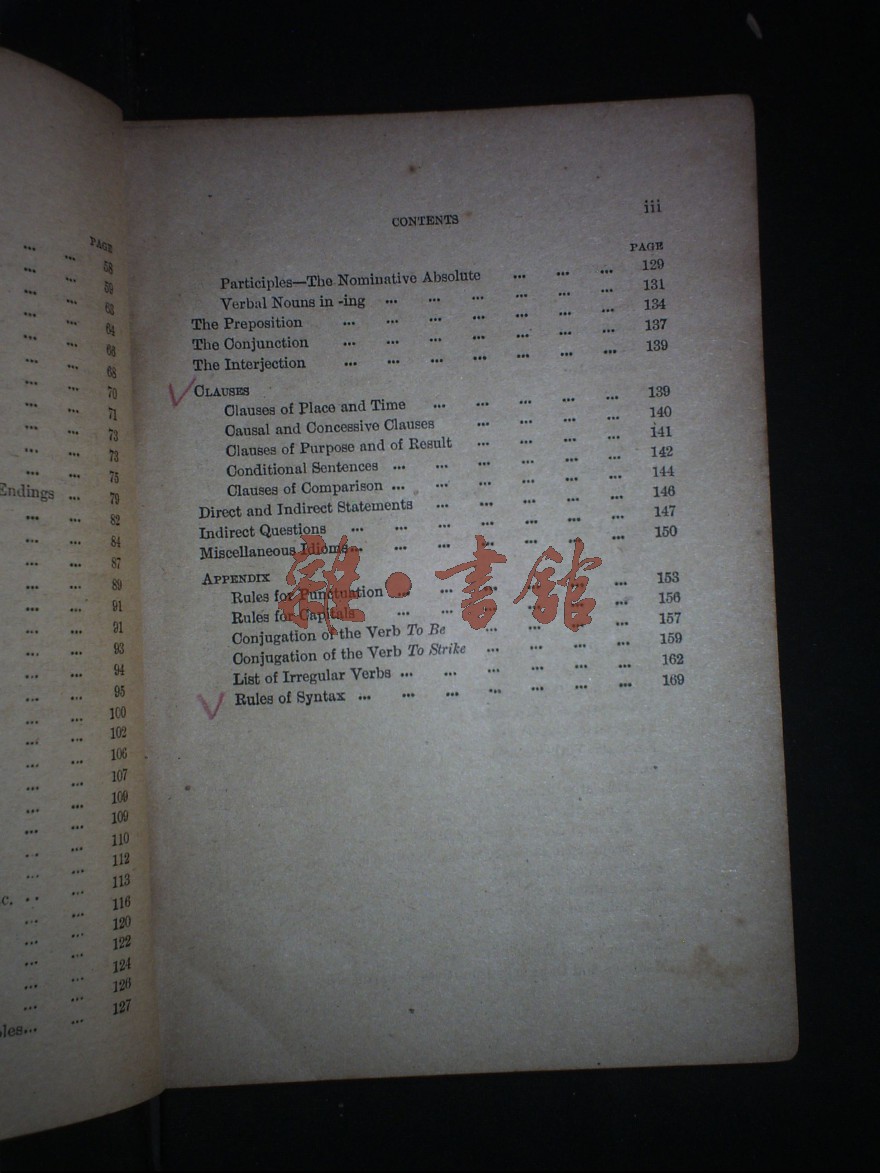 PAGE
... ... 58
... ... 59
... ... 63
... ... 64
... ...
... ... 68
... ... 70
... ... 71
... ... 73
... ... 73
... ... 75
Endings ... 79
... ... 82
... ... 84
... ... 87
... ... 89
... ... 91
... ... 91
... ... 93
... ... 94
... ... 95
... ... 100
... ... 102
... ... 106
... ... 107
... ... 109
... ... 109
... ... 110
... ... 112
... ... 113
c. ... ... 116
... ... 120
... ... 122
... ... 124
... ... 126
les... ... 127
CONTENTS iii
PAGE
Participles—The Nominative Absolute ... ... ... 129
Verbal Nouns in -ing ... ... ... ... ... ... 131
The Preposition ... ... ... ... ... ... ... 134
The Conjunction ... ... ... ... ... ... ... 137
The Interjection ... ... ... ... ... ... ... 139
CLAUSES
Clauses of Place and Time ... ... ... ... ... 139
Causal and Concessive Clauses ... ... ... ... 140
Clauses of Purpose and of Result ... ... ... ... 141
Conditional Sentences ... ... ... ... ... ... 142
Clauses of Comparison ... ... ... ... ... ... 144
Direct and Indirect Statements ... ... ... ... ... 146
Indirect Questions ... ... ... ... ... ... ... 147
Miscellaneous Idioms... ... ... ... ... ... ... 150
APPENDIX
Rules for Punctuation ... ... ... ... ... ... 153
Rules for Capitals ... ... ... ... ... ... 156
Conjugation of the Verb To Be ... ... ... ... 157
Conjugation of the Verb To Strike ... ... ... ... 159
List of Irregular Verbs ... ... ... ... ... ... 162
Rules of Syntax ... ... ... ... ... ... ... 169
雜·書館